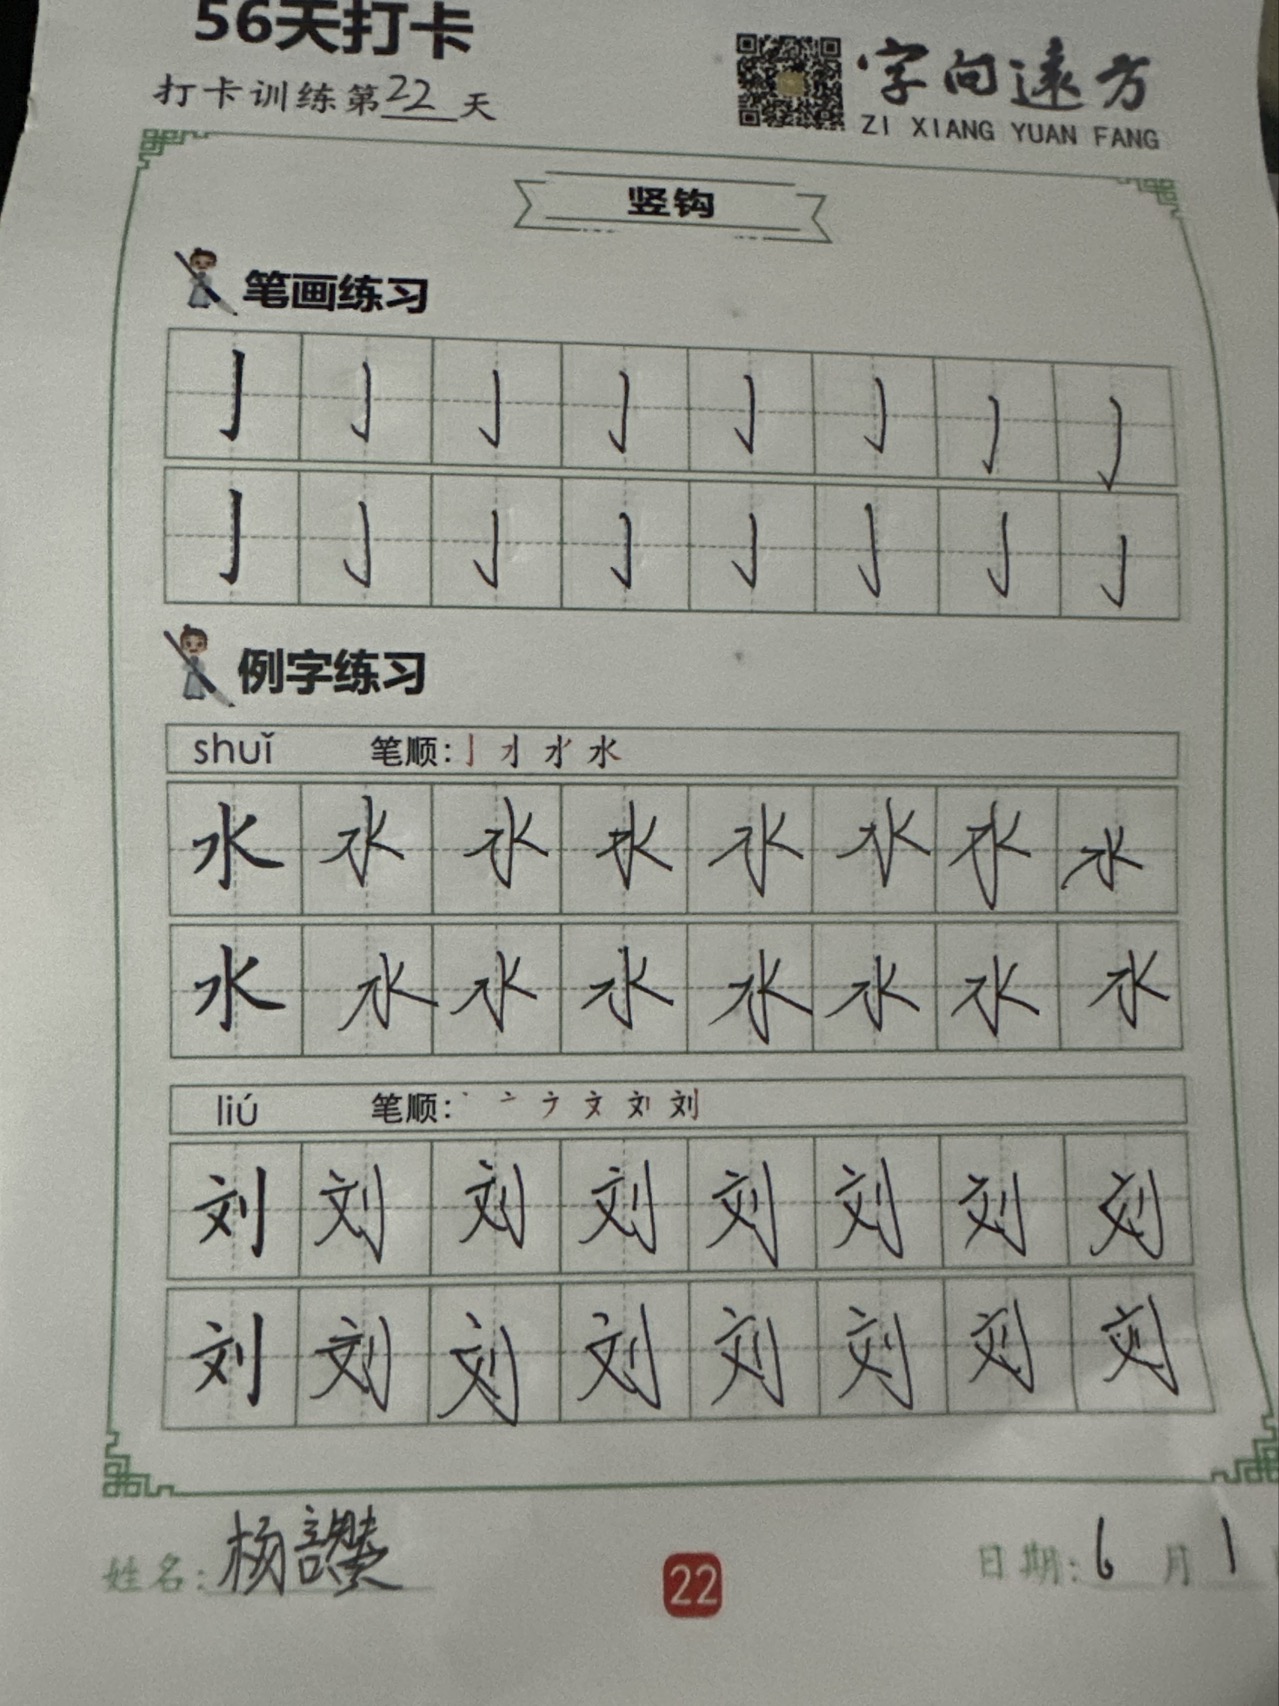 56天打卡
打卡训练第22天
字向远方
ZI XIANG YUAN FANG
竖钩
笔画练习
亅 亅 亅 亅 亅 亅 亅 亅
亅 亅 亅 亅 亅 亅 亅 亅
例字练习
shuǐ 笔顺: 水
水 水 水 水 水 水 水 水
水 水 水 水 水 水 水 水
liú 笔顺: 刘
刘 刘 刘 刘 刘 刘 刘 刘
刘 刘 刘 刘 刘 刘 刘 刘
姓名: 杨讚
22
日期: 6 月 1